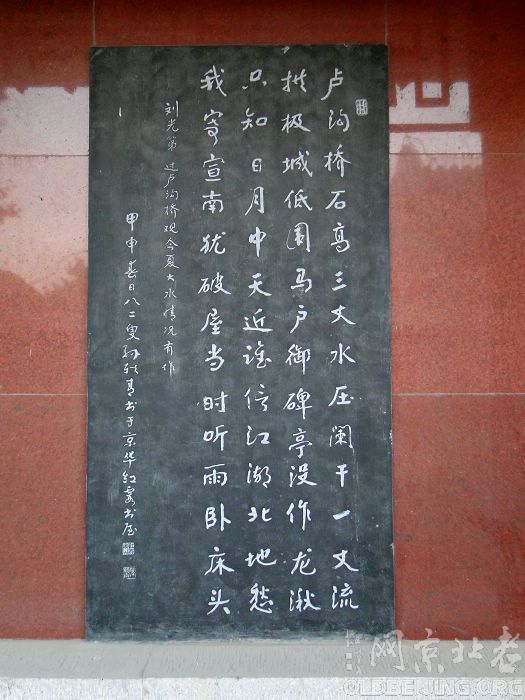 卢沟桥石高三丈水压阑干一丈流
拱极城低圆马户御碑亭没作龙湫
只知日月中天近谁信江湖北地愁
我寄宣南犹破屋当时听雨卧床头
刘光第 过卢沟桥观今夏大水情况有作
甲申春日八二叟孙轶青书于京华红霞书屋
老北京网
OLDBEIJING.ORG